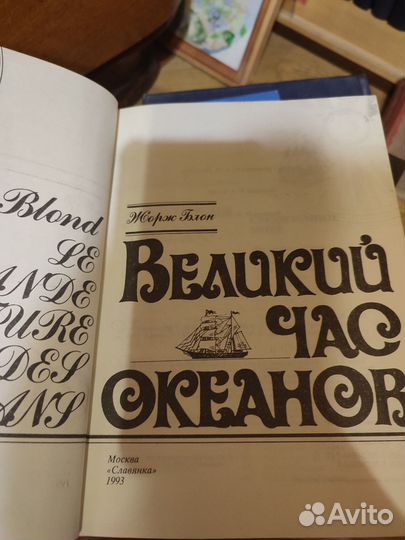 Blond
LE
ANDE
TURE
DES
ANS
Жорж Блон
ВЕЛИКИЙ
ЧАС
ОКЕАНОВ
Москва
«Славянка»
1993
Avito